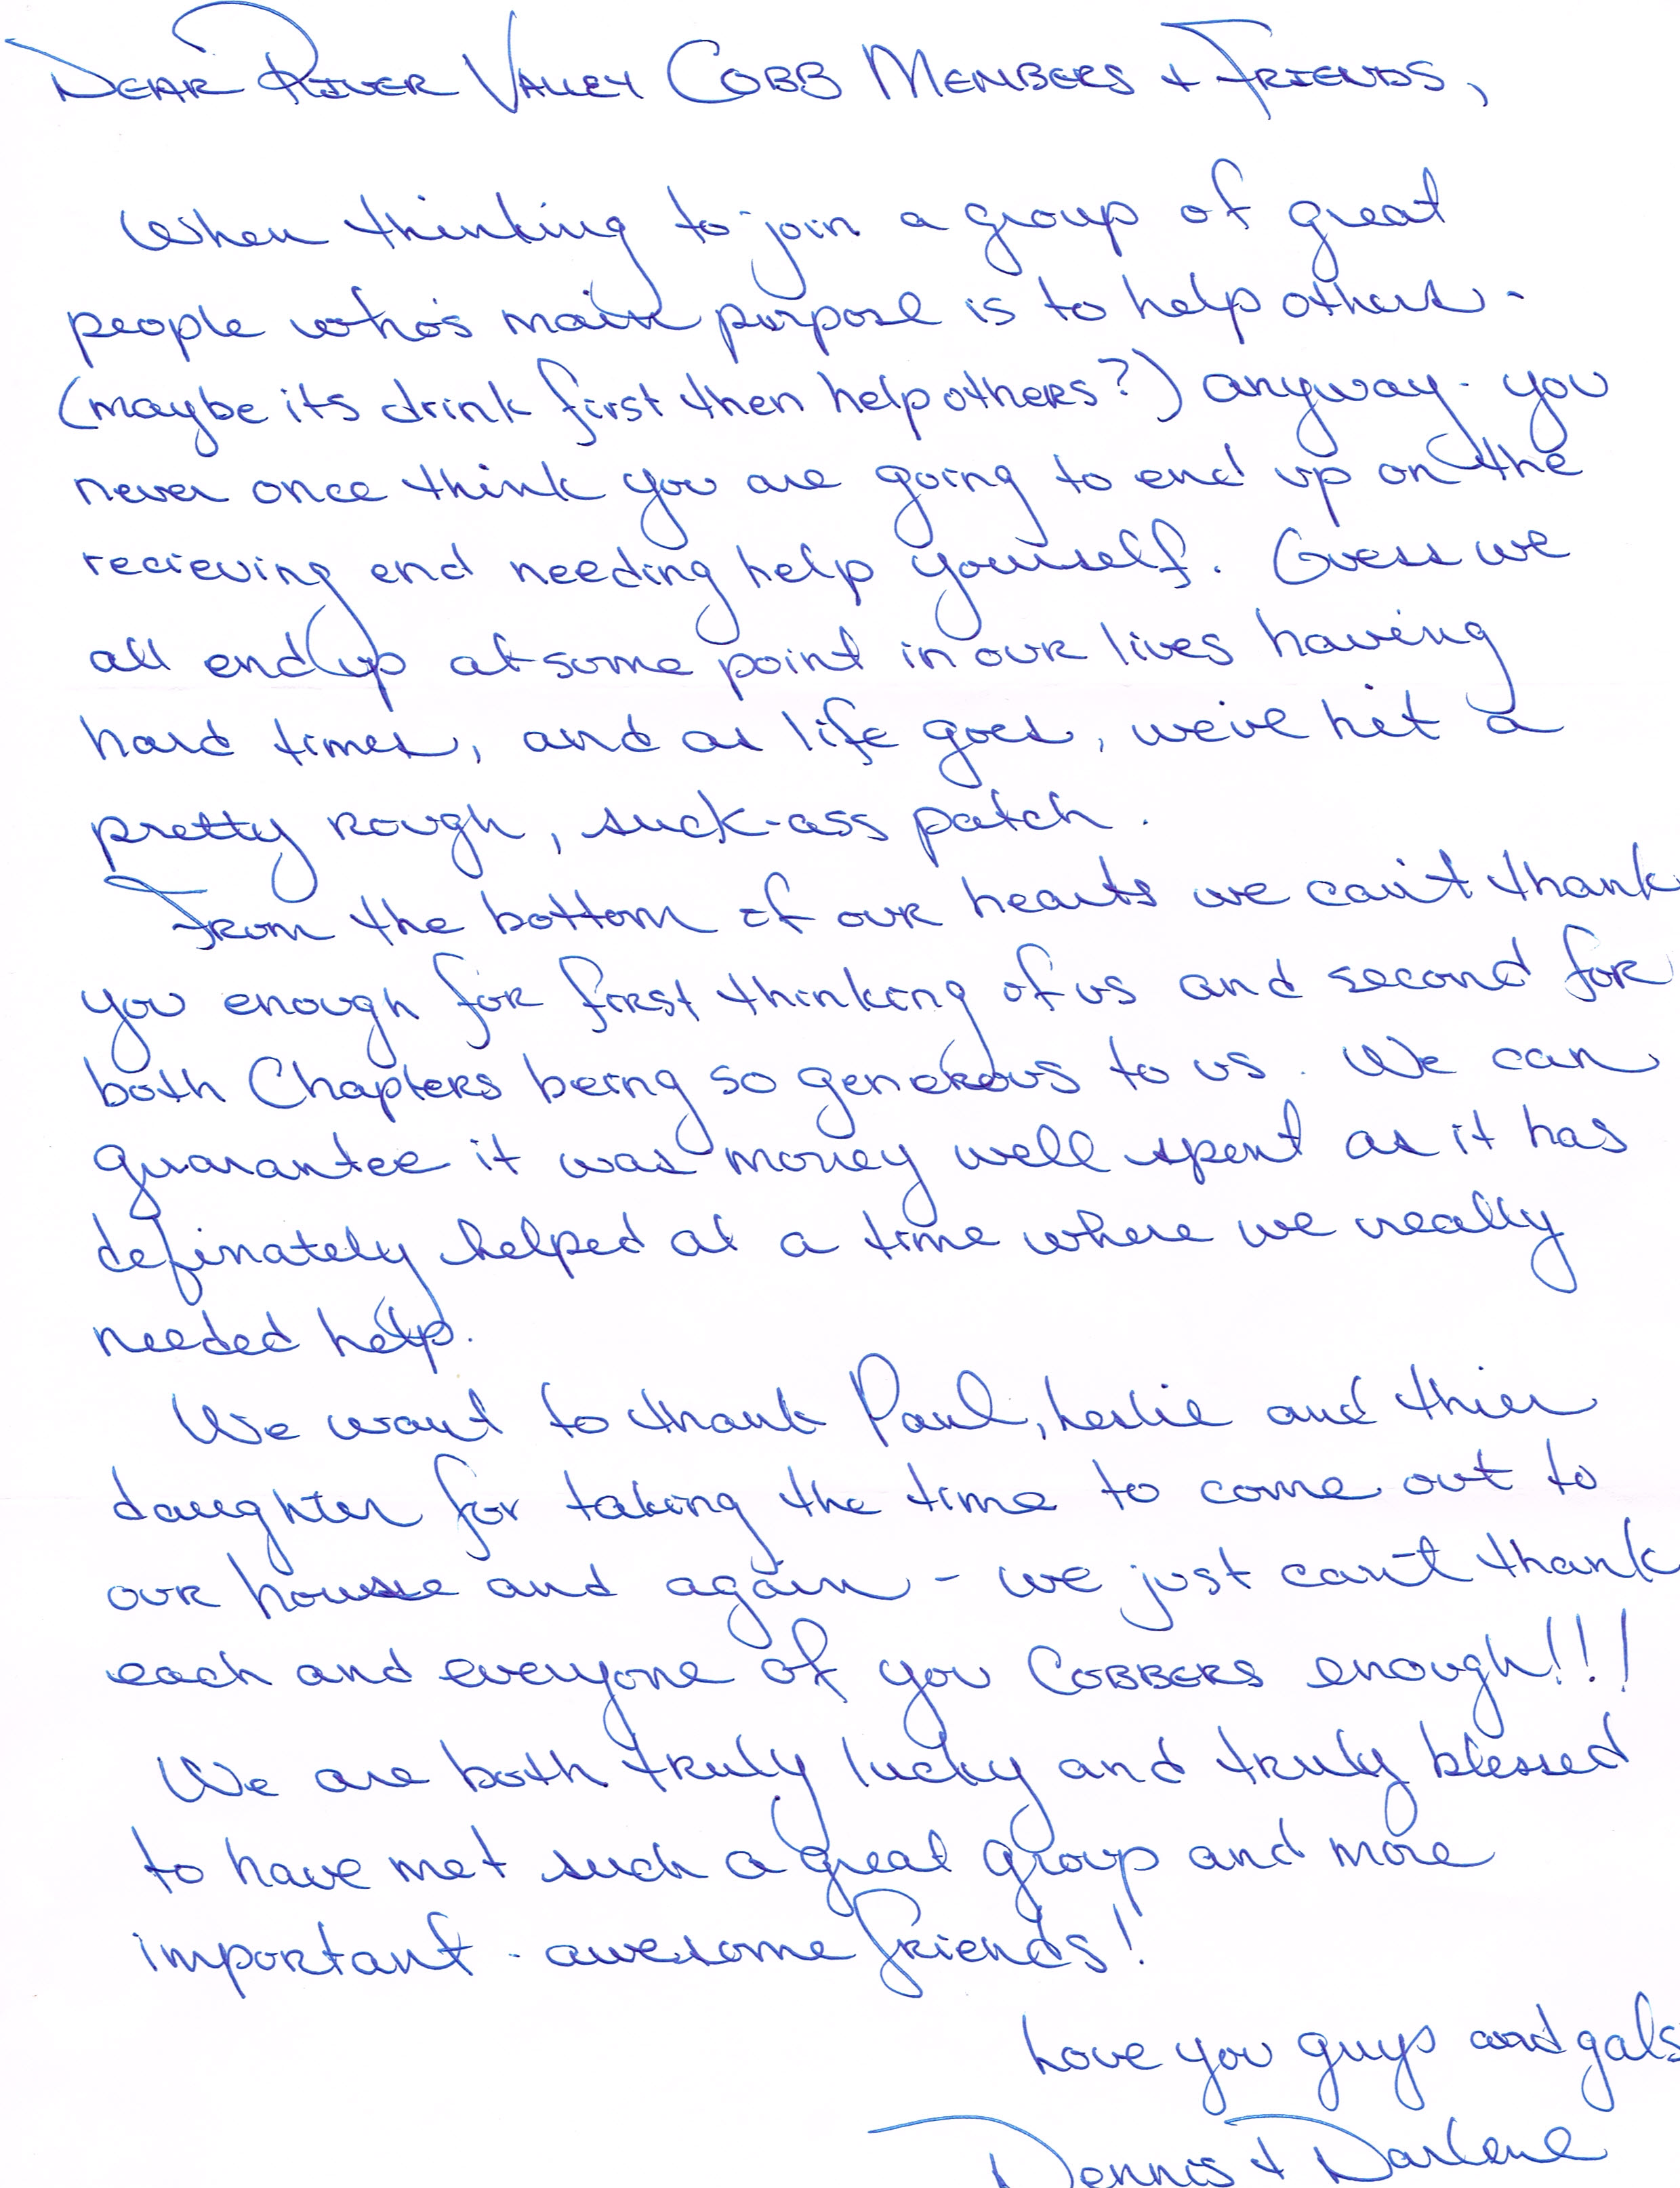 Dear River Valley Cobb Members + Friends,
When thinking to join a group of great
people who's main purpose is to help others -
(maybe its drink first then help others?) anyway - you
never once think you are going to end up on the
recieving end needing help yourself. Guess we
all end up at some point in our lives having
hard times, and as life goes, we've hit a
pretty rough, suck-ass patch.
From the bottom of our hearts we can't thank
you enough for first thinking of us and second for
both Chapters being so generous to us. We can
guarantee it was money well spent as it has
definately helped at a time where we really
needed help.
We want to thank Paul, Leslie and thier
daughter for taking the time to come out to
our house and again - we just can't thank
each and everyone of you COBBERS enough!!!
We are both truly lucky and truly blessed
to have met such a great group and more
important - awesome friends!
Love you guys and gals
Dennis + Darlene